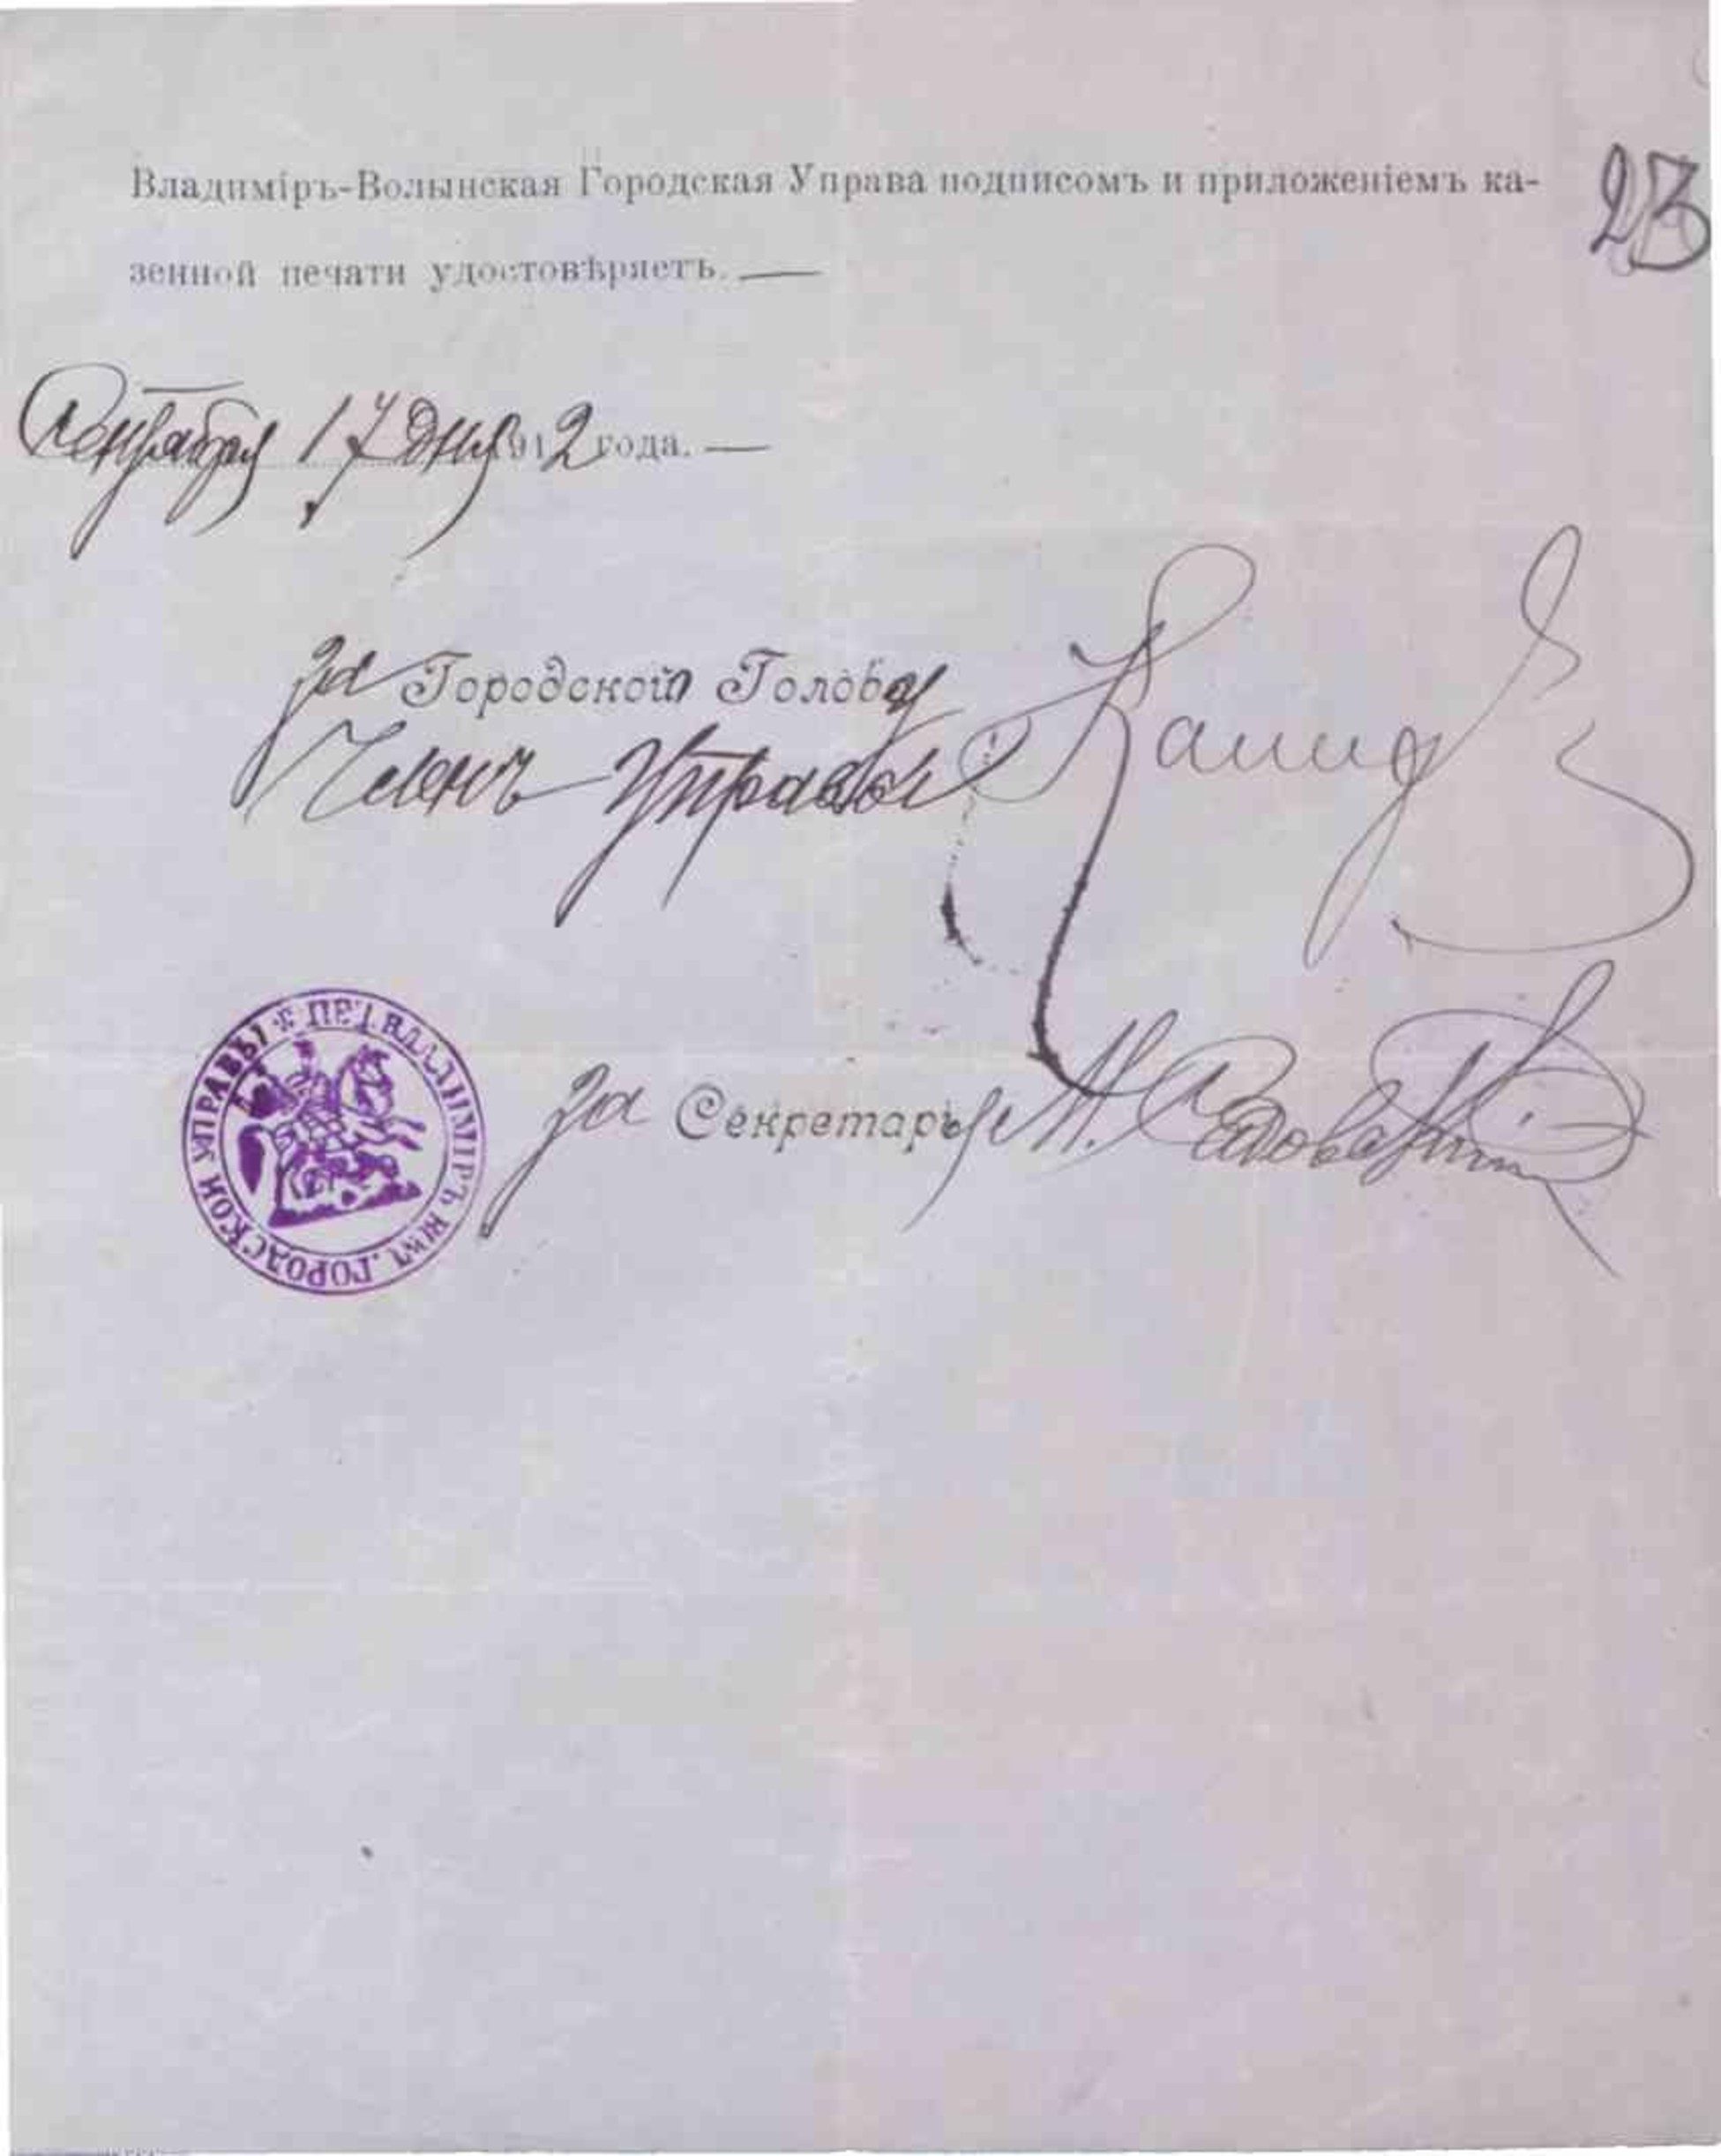 Владиміръ-Волынская Городская Управа подписомъ и приложеніемъ ка-
23
зенной печати удостовѣряетъ. —
Сентября 17 дня 1912 года. —
За Городской Голова
Членъ Управы
За Секретаря М.
ПЕЧ. ВЛАДИМІРЪ ВОЛ. ГОРОДСКОЙ УПРАВЫ